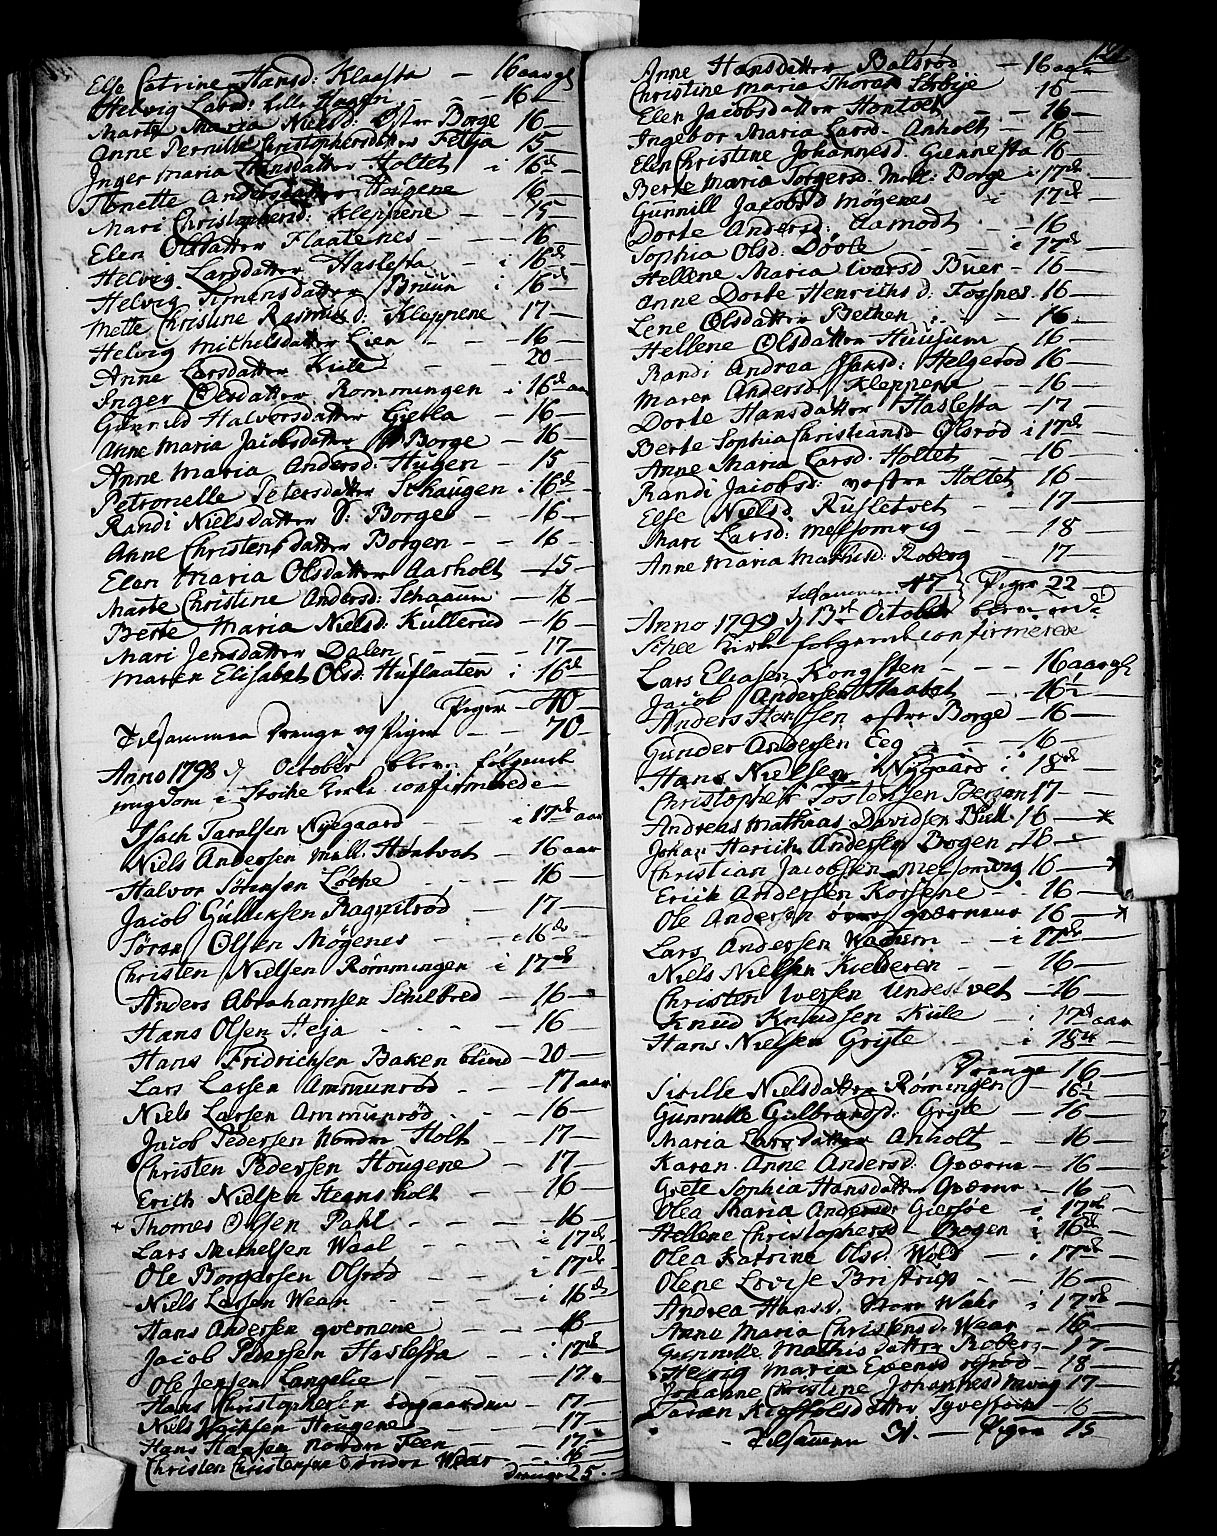 Else Catrine Hansd: Klaasta — 16 aar gl
Helvig Larsd: lille Hagen — 16 —
Marte Maria Nielsd: Øster Borge 16 —
Anne Pernille Christophersdatter Feltja 15 —
Inger Maria Hansdatter Holtet i 16d
Tonette Andersdatter Hougene 16 —
Mari Christophersd: Kleppene — 15 —
Elen Olsdatter Flaatenes — 16 —
Helvig Larsdatter Haslesta — i 16d
Helvig Simensdatter Bruun i 16d
Mette Christine Rasmusd: Kleppene 17 —
Helvig Michelsdatter Lien — 16 —
Anne Larsdatter Kiile — 20 —
Inger Olsdatter Rommningen i 16d aar
Gunrild Halvorsdatter Gietla — 16 —
Anne Maria Jacobsdatter Borge — 16 —
Anne Maria Andersd: Hugen — 15 —
Petronelle Petersdatter Schaugen i 16d
Randi Nielsdatter S: Borge — 16 —
Anne Christensdatter Borgen — 16 —
Elen Maria Olsdatter Aarholt — 15 —
Marte Christine Andersd: Schaaum — 16
Berte Maria Nielsd: Kullerud — 16 —
Mari Jensdatter Dalen — 17 —
Maren Elisabet Olsd: Huflaaten i 16d
Piger — 40 —
Tilsammen Drenge og Piger — 70 —
Anno 1798 d October blev følgende
ungdom i Stocke Kirke confirmerede —
Isach Taralsen Nyegaard — i 17d aar
Niels Andersen mill. Hontvet — 16 aar
Halvor Sörensen Løcke — 16 —
Jacob Gulliksen Ragnilrød — 17 —
Søren Olsen Mögenes — i 16d
Christen Nielsen Rømmingen i 17d
Anders Abrahamsen Schilbred — 16 —
Hans Olsen Heja — 16
Hans Fridrichsen Baken blind — 20 —
Lars Larsen Ammunrød — 17 aar
Niels Larsen Ammunrød — 16 —
Jacob Pedersen Nordre Holt — 17 —
Christen Pedersen Hougene — 17 —
Erich Nielsen Steensholt — 16 —
+ Thomes Olsen Pahl — 16 —
Lars Michelsen Waal — i 17d
Ole Borgersen Olsrød — i 17d
Niels Larsen Wear — i 16d
Hans Andersen qvernene — 16 —
Jacob Pedersen Haslesta — i 17d
Ole Jensen Langelie — 17 —
Hans Christophersen ödegaarden — 17 —
Niels Isachsen Hougene — 17 —
Hans Hansen Nordre Feen — 17 —
Christen Christensen Söndre Wear — 16
Drenge 25
Anne Hansdatter Bolsrød — 16 aar
Christine Maria Thoresd Sørbye 16 —
Elen Jacobsdatter Hontvet — 16 —
Ingebor Maria Larsd. Anholt — 16 —
Elen Christine Johannesd. Giennesta 16 —
Berte Maria Torgersd. Mell: Borge i 17d
Gunnill Jacobsd Mögenes i 17d
Dorte Andersd: Aamodt — 16 —
Sophia Olsd. Døvle — i 17d
Hellene Maria Iversd Buer — 16 —
Anne Dorte Henrichsd: Fossnes 16 —
Lene Olsdatter Bekken — 16 —
Hellene Olsdatter Huusum 16 —
Randi Andrea Hansd: Helgerød 16 —
Maren Andersd Kleppene — 16 —
Dorte Hansdatter Haslesta — 17 —
Berte Sophia Christiansd Olsrød i 17d
Anne Maria Larsd. Holtet — 16 —
Randi Jacobsd: vestre Holtet 16 —
Else Nielsd. Rusletvet — 17 —
Mari Larsd: Melsomvig — 18 —
Anne Maria Mathisd: Roberg — 17 —
tilsammen 47 } Piger 22
Anno 1799 d 13de October bleve ved
Stoke Kirke følgende confirmerede
Lars Eliasen Kongsteen — 16 aar gl
Jacob Andersen Raabet — 16½
Anders Hansen østre Borge — 16 —
Gunder Andersen Eeg — 16 —
Hans Nielsen Nygaard i 18d
Christopher Tostensen Bergan 17 —
Andreas Mathias Davidsen Bull 16 — *
Johan Henrich Andersen Borgen 18 —
Christian Jacobsen Melsomvig 16 — *
Erick Andersen Korsene — 16 —
Ole Andersen qværnene 16 — *
Lars Andersen Wachum — i 17d
Niels Nielsen Kielderen — 16 —
Christen Iversen Undestvet — 16 —
Knud Knudsen Kiile — i 17d aar
Hans Nielsen Gryte — i 18d
Drenge 16 —
Sisille Nielsdatter Rømingen — 16½
Gunnille Gulbrandsd: Gryte — 16 —
Maria Larsdatter Anholt — 16 —
Karen Anne Andersd. Qværne — 16 —
Grete Sophia Hansdatter Qværne — 16 —
Olea Maria Andersd: Giersøe i 17d
Hellene Christophersd. Bogen i 16d
Olea Katrine Olsd. Wold — i 17d
Olene Lovise Bristrup — 16 —
Andrea Hansd. Store Wahr i 17d
Anne Maria Christensd: Wear — 16 —
Gunnille Mathisdatter Roberg — 17 —
Helvig Maria Evensd ogsrød — 18 —
Johanne Christine Johannesd mvig 17 —
Taran Kiøstolsdatter Syvesteen — 16 —
Tilsamen 31. — Piger 15